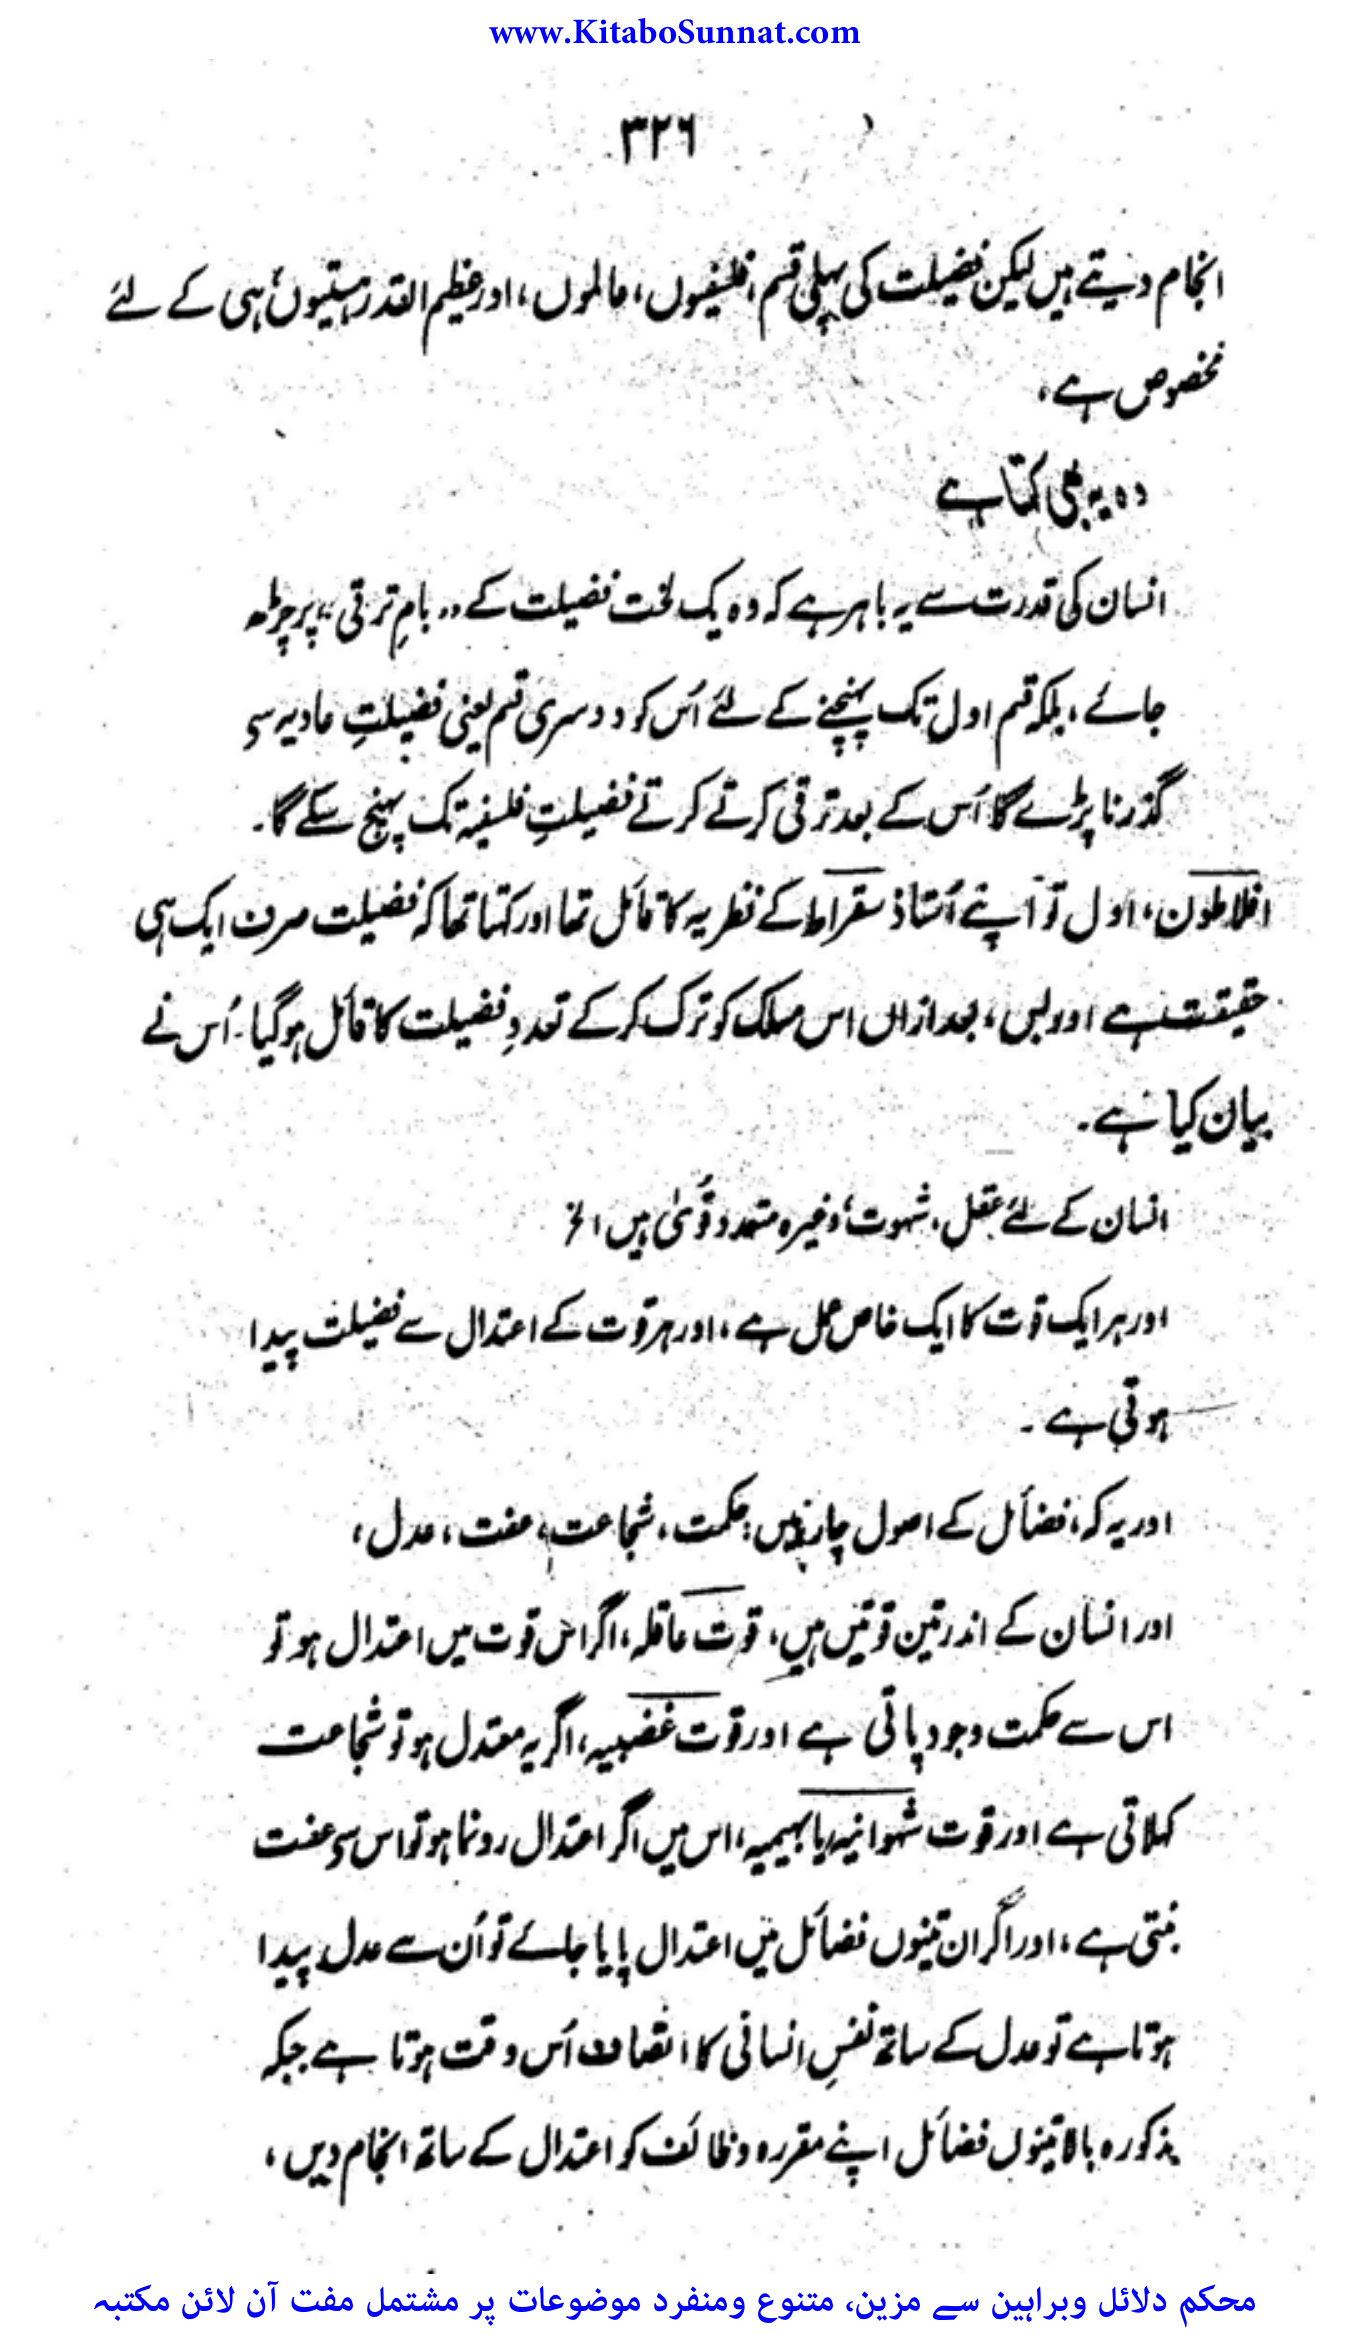 www.KitaboSunnat.com
۳۲۶
انجام دیتے ہیں لیکن فضیلت کی پہلی قسم، فلسفیوں، عالموں، اور عظیم القدر ہستیوں، ہی کے لئے
مخصوص ہے،
وہ یہ بھی کہتا ہے
انسان کی قدرت سے یہ باہر ہے کہ وہ یک لخت فضیلت کے ”بامِ ترقی“ پر چڑھ
جائے، بلکہ قسم اول تک پہنچنے کے لئے اُس کو دوسری قسم یعنی فضیلتِ عادیہ سے
گذرنا پڑے گا اُس کے بعد ترقی کرتے کرتے فضیلتِ فلسفیہ تک پہنچ سکے گا۔
افلاطون، اول تو اپنے اُستاذ سقراط کے نظریہ کا قائل تھا اور کہتا تھا کہ فضیلت صرف ایک ہی
حقیقت ہے اور بس، بعد ازاں اس مسلک کو ترک کر کے تعددِ فضیلت کا قائل ہو گیا۔ اُس نے
بیان کیا ہے۔
انسان کے لئے عقل، شہوت، وغیرہ متعدد قُویٰ ہیں الخ
اور ہر ایک قوت کا ایک خاص عمل ہے، اور ہر قوت کے اعتدال سے فضیلت پیدا
ہوتی ہے۔
اور یہ کہ، فضائل کے اصول چار ہیں: حکمت، شجاعت، عفت، عدل،
اور انسان کے اندر تین قوتیں ہیں، قوت عاقلہ، اگر اس قوت میں اعتدال ہو تو
اس سے حکمت وجود پاتی ہے اور قوت غضبیہ، اگر یہ معتدل ہو تو شجاعت
کہلاتی ہے اور قوت شہوانیہ یا بہیمیہ، اس میں اگر اعتدال رونما ہو تو اس سے عفت
بنتی ہے، اور اگر ان تینوں فضائل میں اعتدال پایا جائے تو اُن سے عدل پیدا
ہوتا ہے تو عدل کے ساتھ نفسِ انسانی کا اتصاف اُس وقت ہوتا ہے جبکہ
مذکورہ بالا تینوں فضائل اپنے مقررہ وظائف کو اعتدال کے ساتھ انجام دیں،
محکم دلائل وبراہین سے مزین، متنوع ومنفرد موضوعات پر مشتمل مفت آن لائن مکتبہ